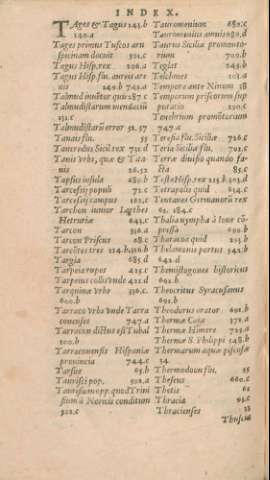 INDEX.
TAges & Tagus 243.b
240.a
Tages primus Tuscos aru
spicinam docuit 301.c
Tagus Hisp. rex 206.a
Tagus Hisp. flu. aureis are
nis 249.b 742.a
Talmud inuētor quis 287.c
Talmudistarum mendaciū
232.c
Talmudistarū error 32. 57
Tanais flu. 55
Tancredus Sicil. rex 731.d
Tanis vrbs, quæ & Taa
nis 26.52
Tapsus insula 480.b
Tarcesij populi 71.c
Tarcesius campus 202.c
Tarchon iunior Larthes
Hetruriæ 642.c
Tarcon 350.a
Tarcon Priscus 68.c
Targia 685.d
Tarpeia rupes 425.c
Tarpeius collis vnde 422.d
Tarquinæ vrbs 350.c.
600.b
Tarraco vrbs vnde Tarra
conenses 747.a
Tarracon dictus est Tubal
100.b
Tarraconensis Hispaniæ
prouincia 744.c
Tarsus 65.b
Taurisci pop. 502.a
Taurisium opp. quod Trini
sium à Noricis conditum
502.c
Tauromenitan 682.c
Tauromenitis amnis 680.d
Taurus Siciliæ promonto-
rium 700.b
Teglat 245.b
Telchines 101.a
Tempore ante Ninum 38
Temporum priscorum sup
putatio 230.c
Tenebrium promōtorium
747.a
Teresia flu. Siciliæ 726.c
Teria Siciliæ flu. 702.c
Terræ diuisio quando fa-
cta 85.c
Testa Hisp. rex 215.b 303.d
Tetrapolis quid 214.c
Teutanes Germanorū rex
92. 184.c
Thalia nympha à Ioue cō-
pressa 690.b
Tharaxus quid 213.b
Thelamonis portus 542.b
642.d
Themistogenes historicus
692.b
Theocritus Syracusanus
692.b
Theodurus orator 692.b
Thermæ Cotæ 372.a
Thermæ Himeræ 723.a
Thermæ S. Philippi 548.b
Thermarum aquæ piscosæ
24
Thermodoon flu. 55
Theseus 660.c
Thetis 62
Thracia 94.c
Thracienses 28
Thuscia